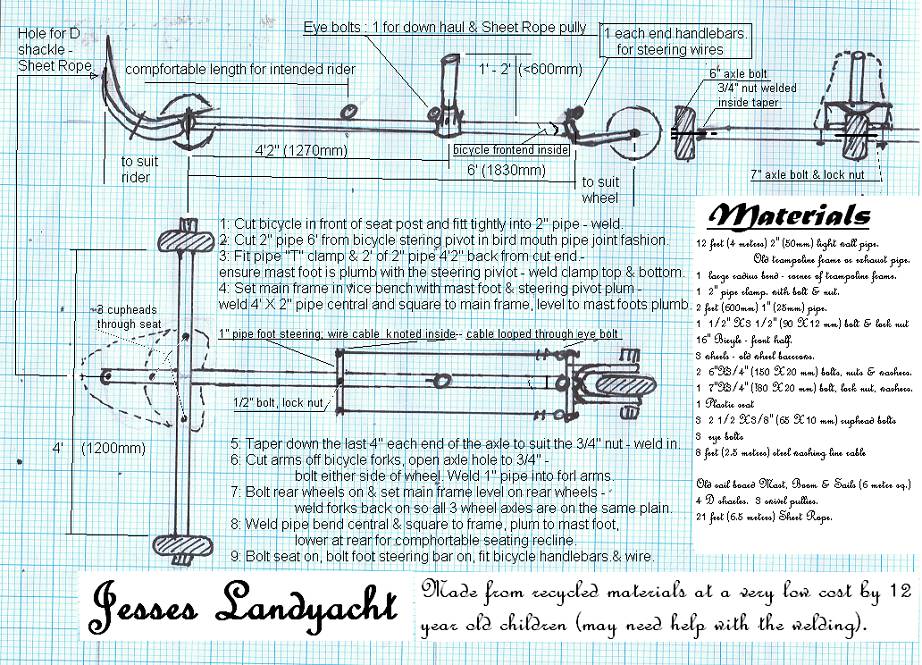 Hole for D
shackle -
Sheet Rope
compfortable length for intended rider
Eye bolts : 1 for down haul & Sheet Rope pully
1 each end handlebars.
for steering wires
1' - 2' (<600mm)
6" axle bolt
3/4" nut welded
inside taper
to suit
rider
4'2" (1270mm)
bicycle frontend inside
6' (1830mm)
to suit
wheel
7" axle bolt & lock nut
1: Cut bicycle in front of seat post and fitt tightly into 2" pipe - weld.
2: Cut 2" pipe 6' from bicycle stering pivot in bird mouth pipe joint fashion.
3: Fit pipe "T" clamp & 2' of 2" pipe 4'2" back from cut end.-
ensure mast foot is plumb with the steering piviot - weld clamp top & bottom.
4: Set main frame in vice bench with mast foot & steering pivot plum -
weld 4' X 2" pipe central and square to main frame, level to mast foots plumb.
3 cupheads
through seat
1" pipe foot steering; wire cable knoted inside-- cable looped through eye bolt
1/2" bolt, lock nut
4' (1200mm)
5: Taper down the last 4" each end of the axle to suit the 3/4" nut - weld in.
6: Cut arms off bicycle forks, open axle hole to 3/4" -
bolt either side of wheel. Weld 1" pipe into forl arms.
7: Bolt rear wheels on & set main frame level on rear wheels -
weld forks back on so all 3 wheel axles are on the same plain.
8: Weld pipe bend central & square to frame, plum to mast foot,
lower at rear for comphortable seating recline.
9: Bolt seat on, bolt foot steering bar on, fit bicycle handlebars & wire.
Materials
12 feet (4 meters) 2" (50mm) light wall pipe.
Old trampoline frame or exhaust pipe.
1 large radius bend - corner of trampoline frame.
1 2" pipe clamp. with bolt & nut.
2 feet (600mm) 1" (25mm) pipe.
1 1/2" X3 1/2" (90 X12 mm) bolt & lock nut
16" Bicyle - front half.
3 wheels - old wheel barrows.
2 6"X3/4" (150 X20 mm) bolts, nuts & washers.
1 7"X3/4" (180 X20 mm) bolt, lock nut, washers.
1 Plastic seat
3 2 1/2 X3/8" (65 X10 mm) cuphead bolts
3 eye bolts
8 feet (2.5 metres) steel washing line cable
Old sail board Mast, Boom & Sails (6 meter sq.)
4 D shackles. 3 swivel pullies.
21 feet (6.5 metres) Sheet Rope.
Jesses Landyacht
Made from recycled materials at a very low cost by 12
year old children (may need help with the welding).